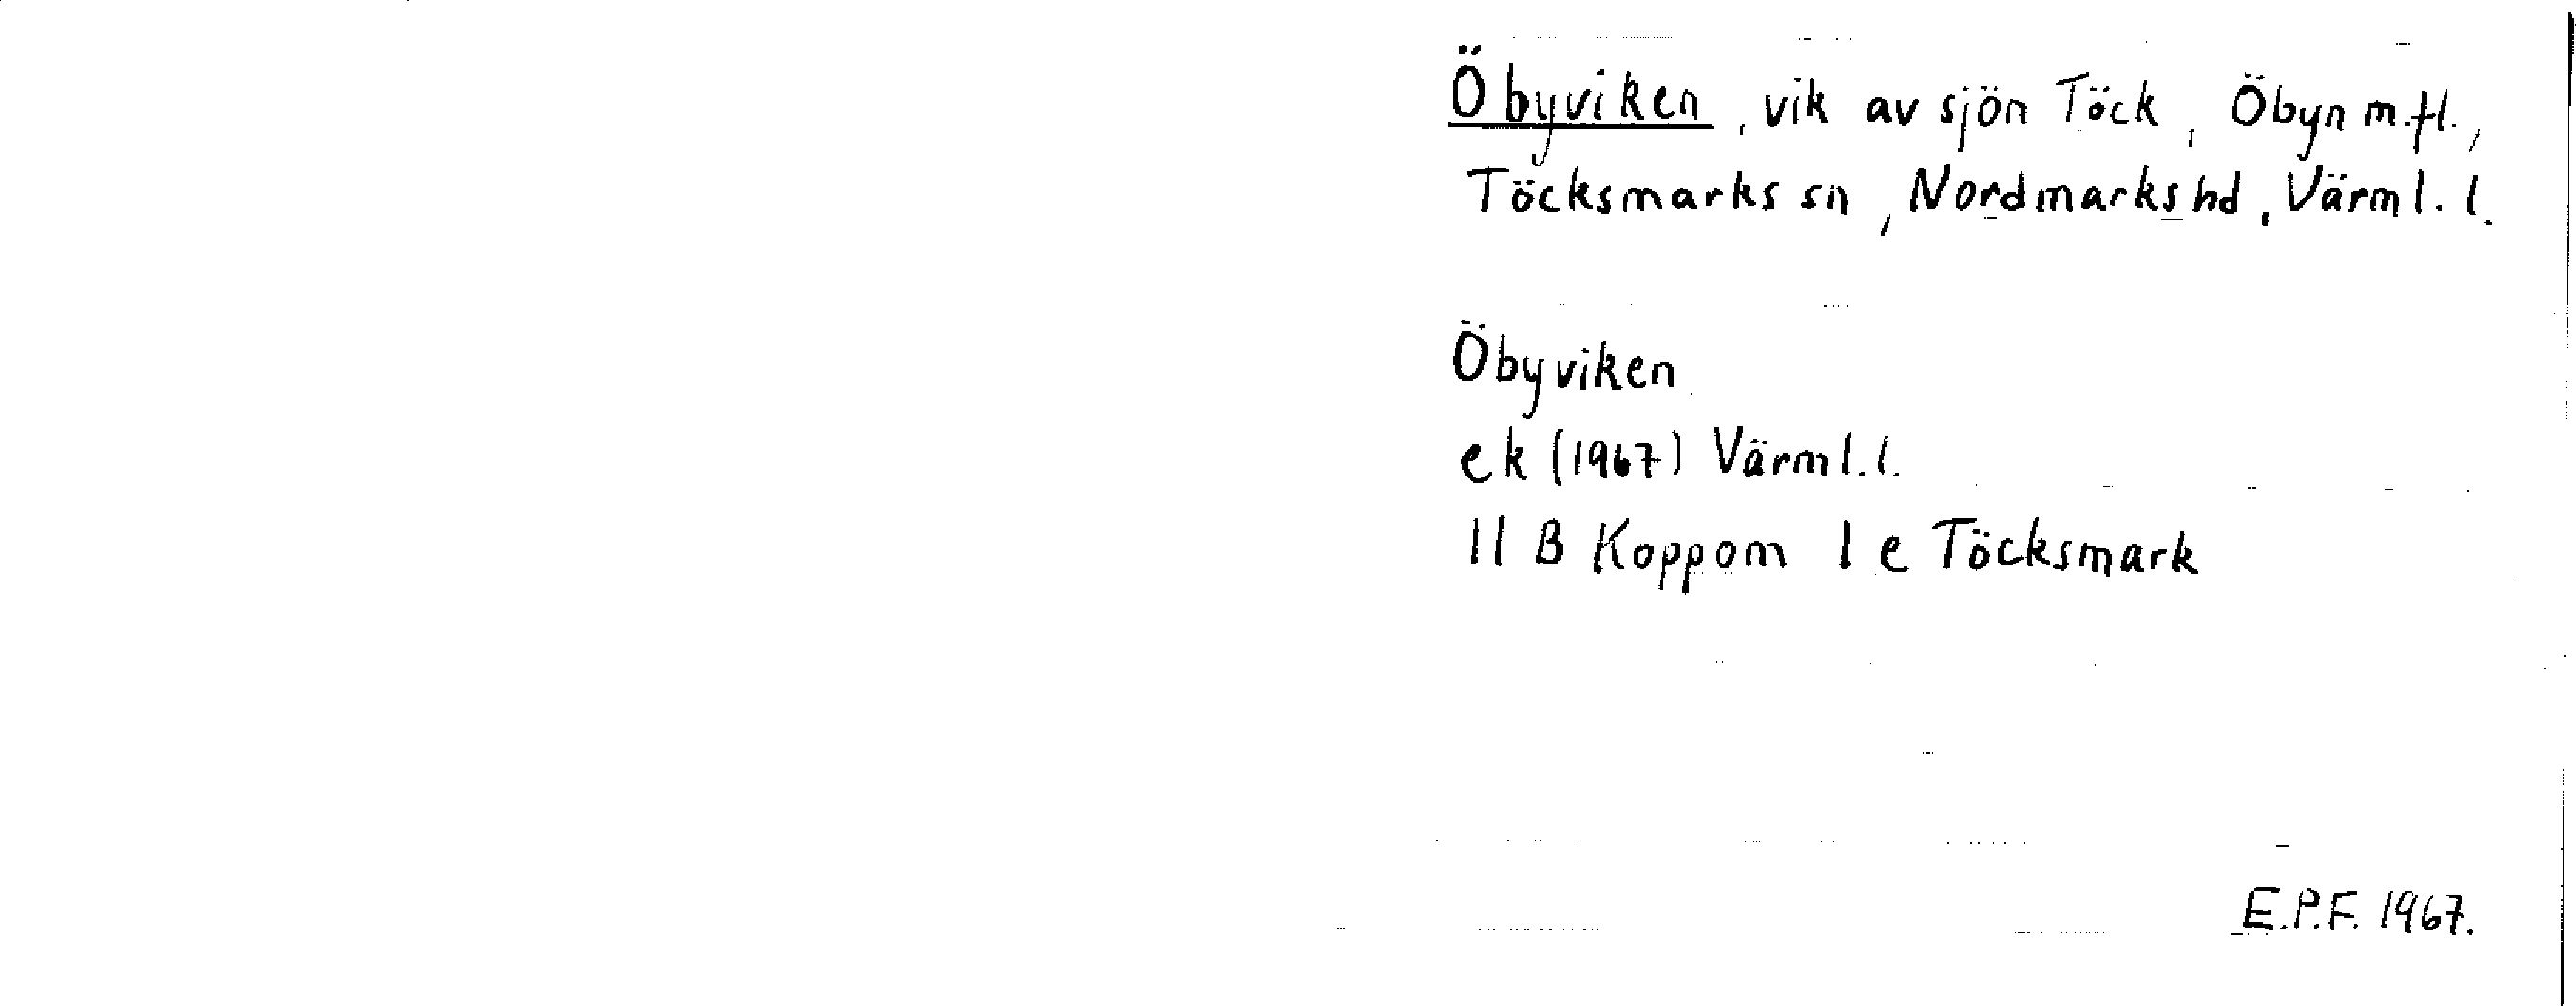 Öbyviken, vik av sjön Töck, Öbyn m.fl.,
Töcksmarks sn, Nordmarks hd, Värml. l.
Öbyviken
ek (1967) Värml. l.
11 B Koppom 1 e Töcksmark
E.P.F. 1967.